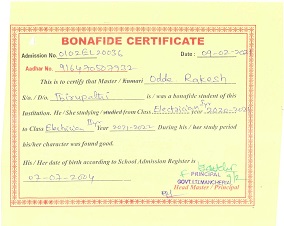 BONAFIDE CERTIFICATE
Admission No. Date : 09-02-
Aadhar No.
This is to certify that Master / Kumari Odde Rakesh
S/o. / D/o. Thirupathi is / was a bonafide student of this
Institution. He / She studying / studied from Class Electrician Iyr 2020-2021
to Class Year 2021-2022 During his / her study period
his/her character was found good.
His / Her date of birth according to School Admission Register is
07-07-2004
PRINCIPAL
GOVT.I.T.I.MANCHERIAL
Head Master / Principal